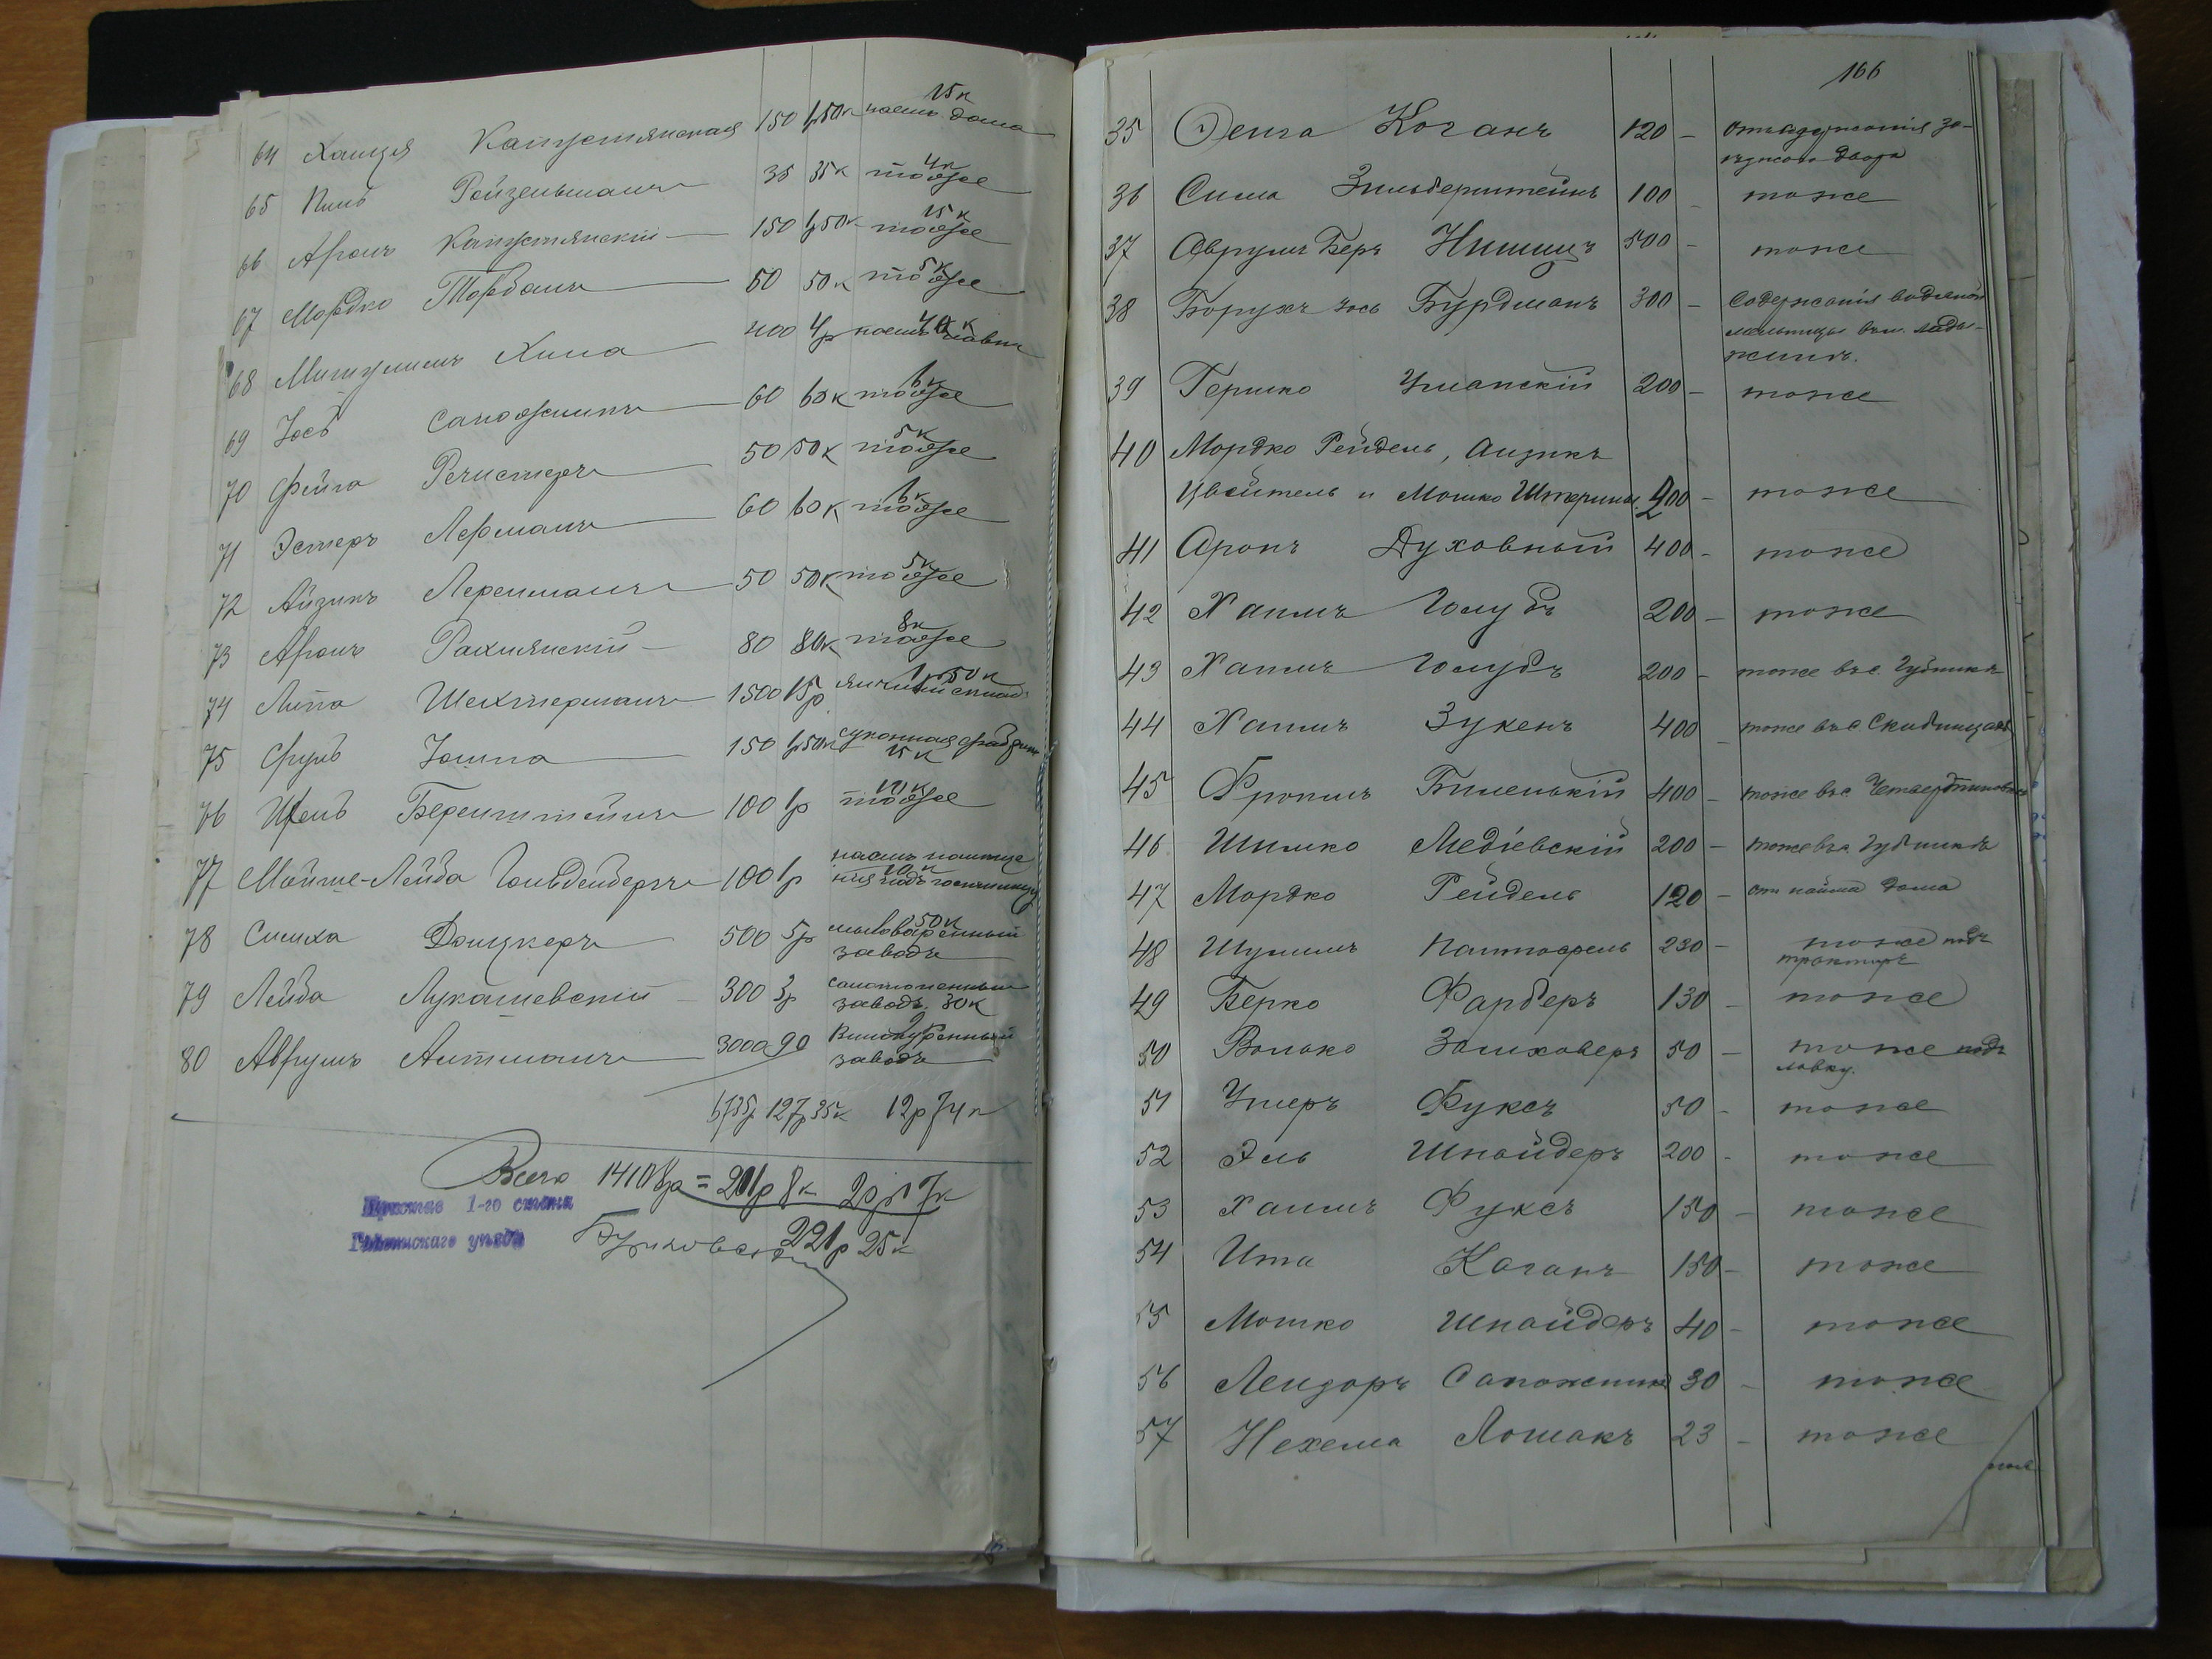 15к
64 Хаиця Капустянская 150 1р50к наемъ дома
4к
65 Пинь Ройзенъманъ 35 35к тоже
15к
66 Аронъ Капустянскій 150 1р50к тоже
5к
67 Мордко Торбанъ 50 50к тоже
40к
68 Мишулимъ Хина 400 4р наемъ лавки
6к
69 Іось Сапожникъ 60 60к тоже
5к
70 Фейга Речистеръ 50 50к тоже
6к
71 Эстеръ Лерманъ 60 60к тоже
5к
72 Айзикъ Лерешманъ 50 50к тоже
8к
73 Аронъ Рахнянскій 80 80к тоже
1р50к
74 Липа Шехтерманъ 1500 15р яичный складъ
75 Сруль Юшпа 150 1р50к суконная
15к
10к
76 Беренштейнъ 100 1р тоже
77 Мойше-Лейба Гольденбергъ 100 1р наемъ помеще
10к
нія подъ гостинницу
78 Симха Донцкеръ 500 5р мыловаренный
50к
заводъ
79 Лейба Лукашевскій 300 3р салотопенный
заводъ 30к
80 Аврумъ Антманъ 3000 90 Винокуренный
заводъ
6735р 127р35к 12р74к
Всего 14108р = 201р8к 20р17к
1-го стана
уѣзда
221р25к
166
35 Эенга Коганъ 120 – отъ содержанія за-
ѣзжого двора
36 Сима Зильберштейнъ 100 – тоже
37 Аврумъ Беръ Нишицъ 500 – тоже
38 Борухъ Іось Бурдманъ 300 – Содержанія водяной
мельницы въ м. Лады-
жинѣ.
39 Гершко Уманскій 200 – тоже
40 Мордко Рейдель, Аизикъ
Цвейтель и Мошко Штеринъ 200 – тоже
41 Аронъ Духовный 400 – тоже
42 Хаимъ Голубъ 200 – тоже
43 Хаимъ Голубъ 200 – тоже въ с. Губникѣ
44 Хаимъ Зукенъ 400 – тоже въ с. Скибинцахъ
45 Фроимъ Биленькій 400 – тоже въ с. Четвертиновкѣ
46 Шимко Медіевскій 200 – тоже въ с. Губникѣ
47 Мордко Рейдель 120 – отъ найма дома
48 Шулимъ Пантофель 230 – тоже подъ
трактиръ
49 Берко Фарберъ 130 – тоже
50 Волько Зомховеръ 50 – тоже подъ
лавку.
51 Умеръ Фуксъ 50 – тоже
52 Эль Шнайдеръ 200 – тоже
53 Хаимъ Фуксъ 150 – тоже
54 Ита Коганъ 150 – тоже
55 Мошко Шнайдеръ 40 – тоже
56 Лейзоръ Сапожникъ 30 – тоже
57 Нехема Лошакъ 23 – тоже